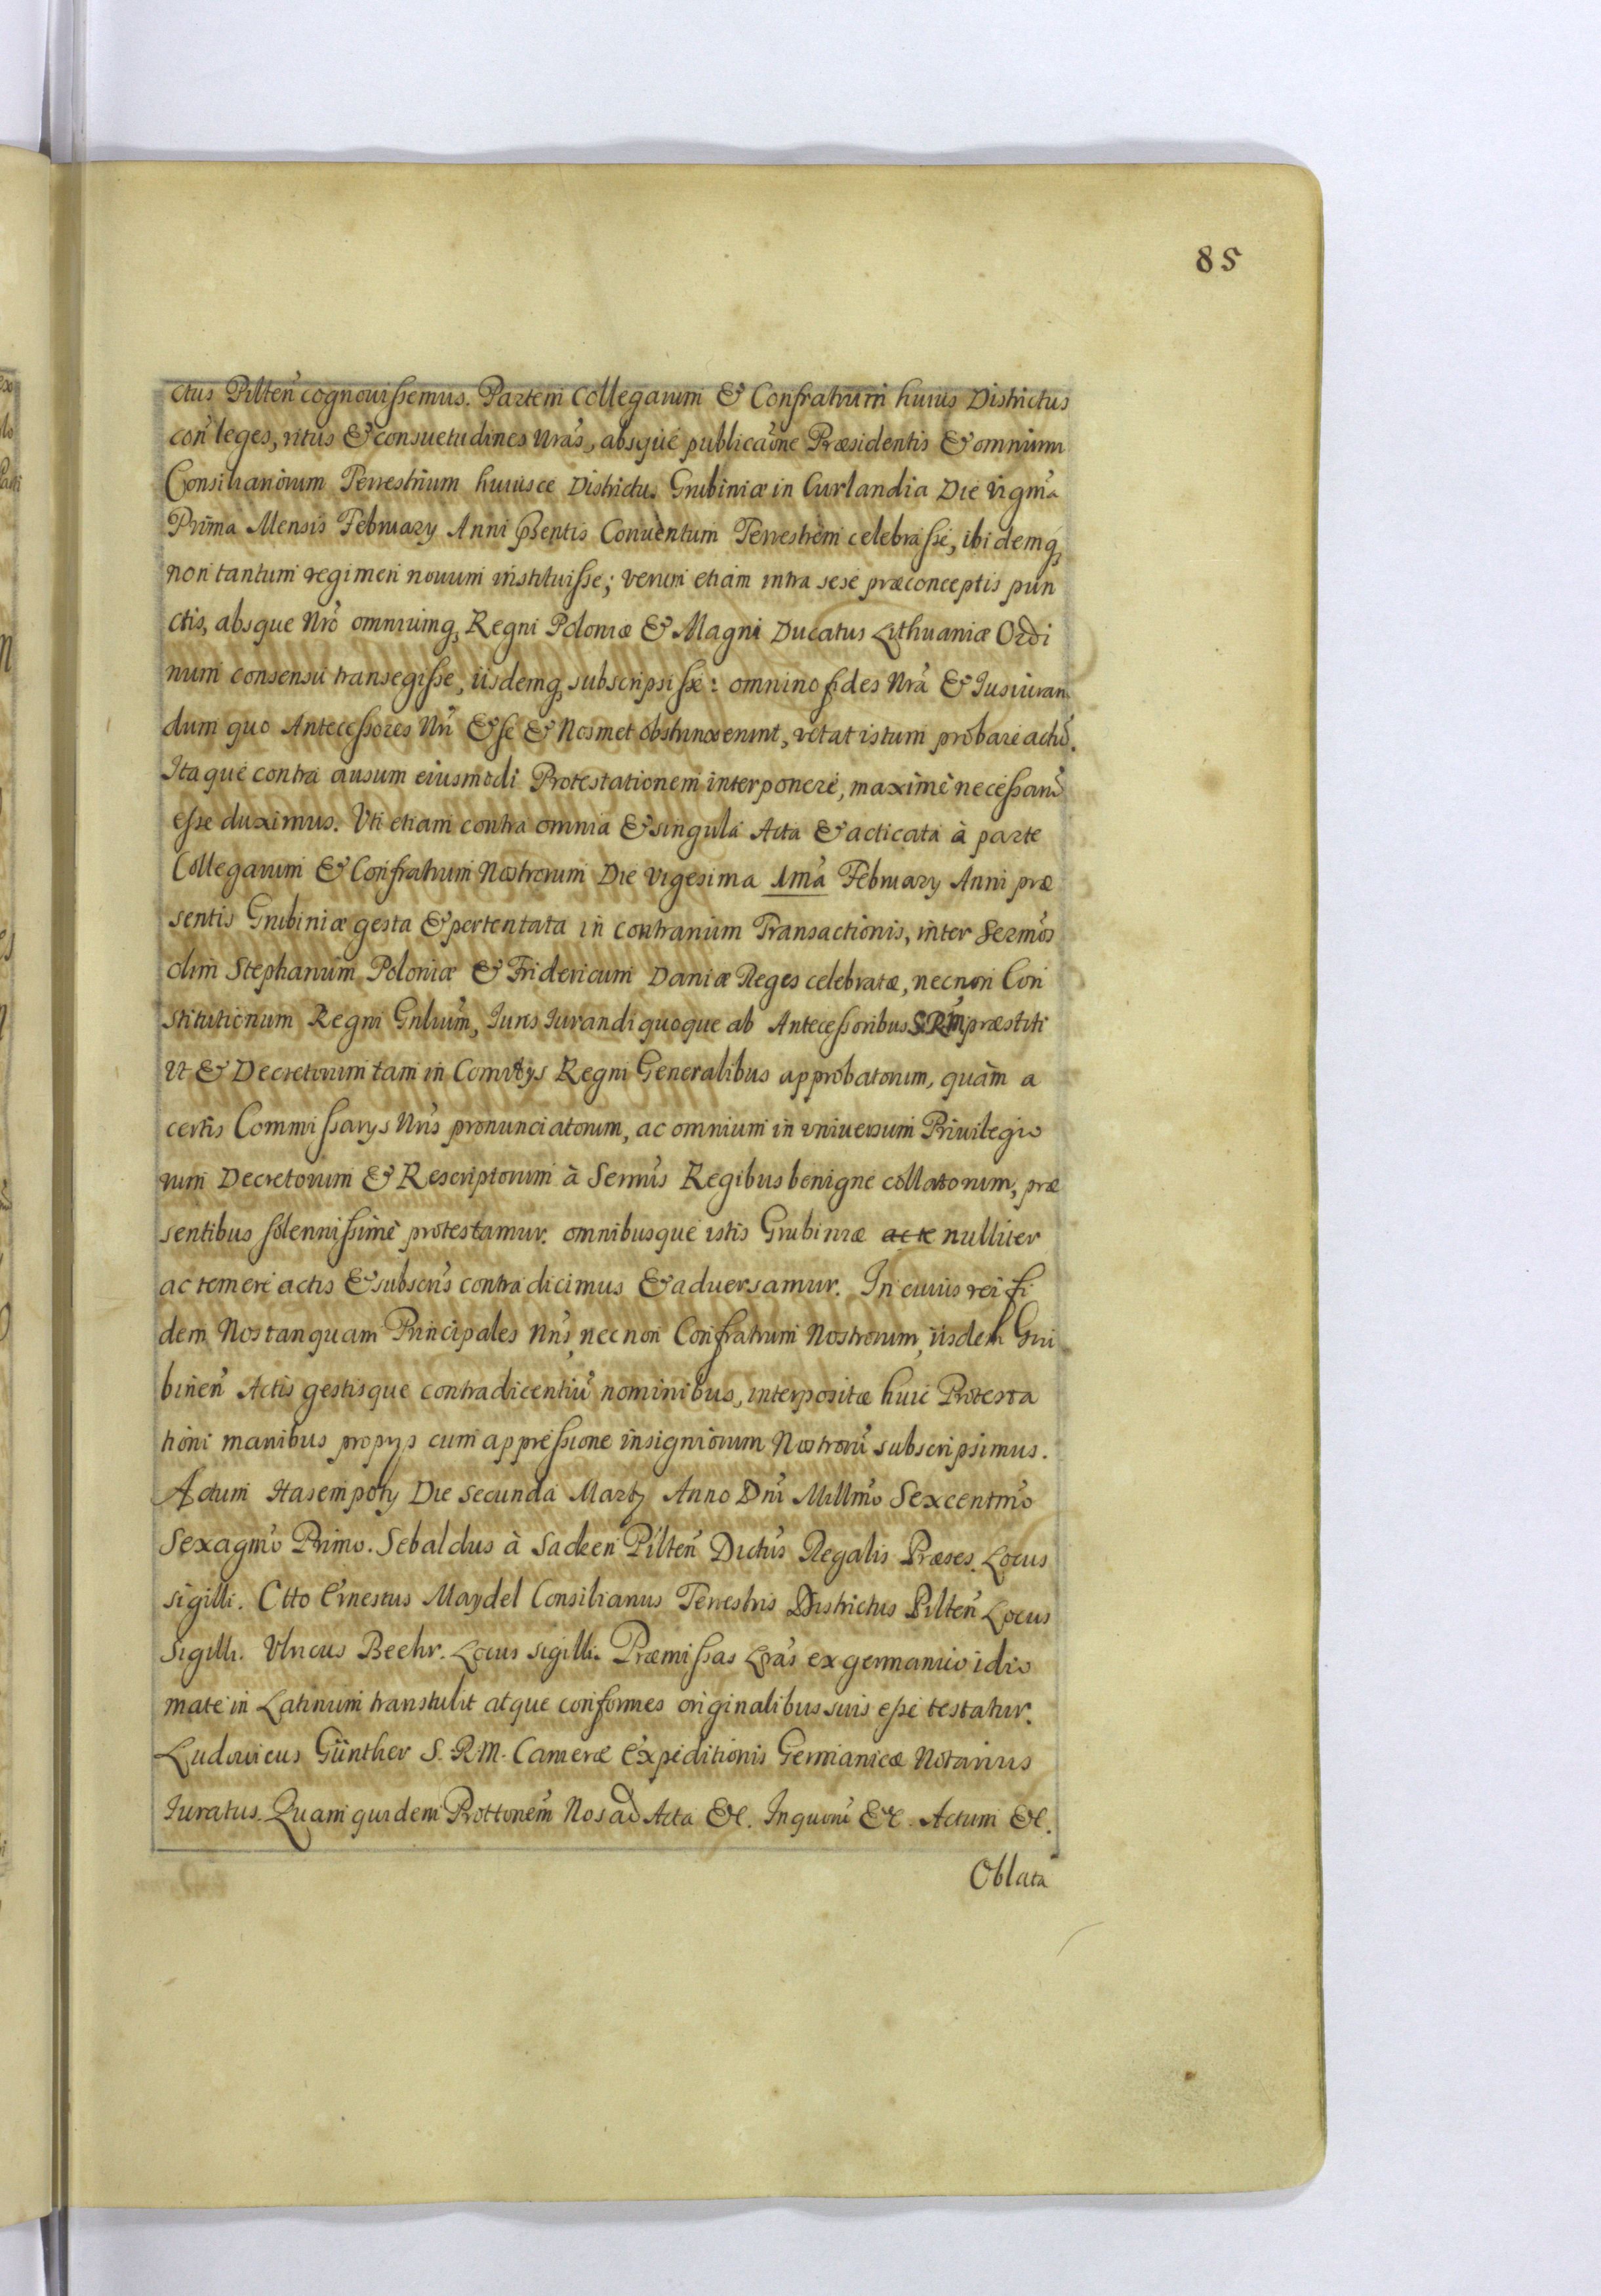 85
ctus Pilteñ cognouissemus. Partem Collegarum & Confratrum huius Districtus
coñ leges, ritus & consuetudines Nrãs, absque publicaõne Præsidentis & omnium
Consiliariorum Terrestrium huiusce Districtus Grubiniæ in Curlandia Die vigm̃a
Prima Mensis February Anni pñsentis Conuentum Terrestrem celebrasse, ibidemq,
non tantum regimen nouum instituisse; verum etiam intra sese præconceptis pun
ctis, absque Nrõ omniumq, Regni Poloniæ & Magni Ducatus Lithuaniæ Ordi
num consensu transegisse, iisdemq, subscripsisse: omnino fides Nrã & Iusiuran
dum quo Antecessores Nrĩ & se & Nosmet obstrinxerunt, vetat istum probare actũ.
Itaque contra ausum eiusmodi Protestationem interponere, maximè necessariũ
esse duximus. Vti etiam contra omnia & singula Acta & acticata à parte
Collegarum & Confratrum Nostrorum Die vigesima 1m̃a February Anni præ
sentis Grubiniæ gesta & pertentata in contrarium Transactionis, inter Sermõs
olim Stephanum Poloniæ & Fridericum Daniæ Reges celebratæ, necnon Con
stitutionum Regni Gnlium̃, Iuris Iurandi quoque ab Antecessoribus SRM præstiti
vt & Decretorum tam in Comitys Regni Generalibus approbatorum, quàm a
certis Commissarys Nrĩs pronunciatorum, ac omnium in vniuersum Priuilegio
rum Decretorum & Rescriptorum à Sermĩs Regibus benigne collatorum, præ
sentibus solennissimè protestamur. omnibusque istis Grubiniæ acte nulliter
ac temere actis & subscrĩs contradicimus & aduersamur. In cuius rei fi
dem Nos tanquam Principales Nrĩs, necnon Confratrum Nostrorum, iisdem Gru
bineñ Actis gestisque contradicentiũ nominibus, interpositæ huic Protesta
tioni manibus proprys cum appressione insigniorum Nostrorũ subscripsimus.
Actum Hasenpoty Die Secunda Marty Anno Dnĩ Millmõ Sexcentmõ
Sexagmõ Primo. Sebaldus à Sacken Pilteñ Dictũs Regalis Præses. Locus
sigilli. Otto Ernestus Maydel Consiliarius Terrestris Districtus Pilteñ Locus
Sigilli. Vlricus Beehr. Locus sigilli. Præmissas Lrãs ex germanico idio
mate in Latinum transtulit atque conformes originalibus suis esse testatur.
Ludouicus Günther S. R. M. Cameræ Expeditionis Germanicæ Notarius
Iuratus. Quam quidem Prottonem̃ Nos ad Acta &c. In quorũ &c. Actum &c.
Oblata